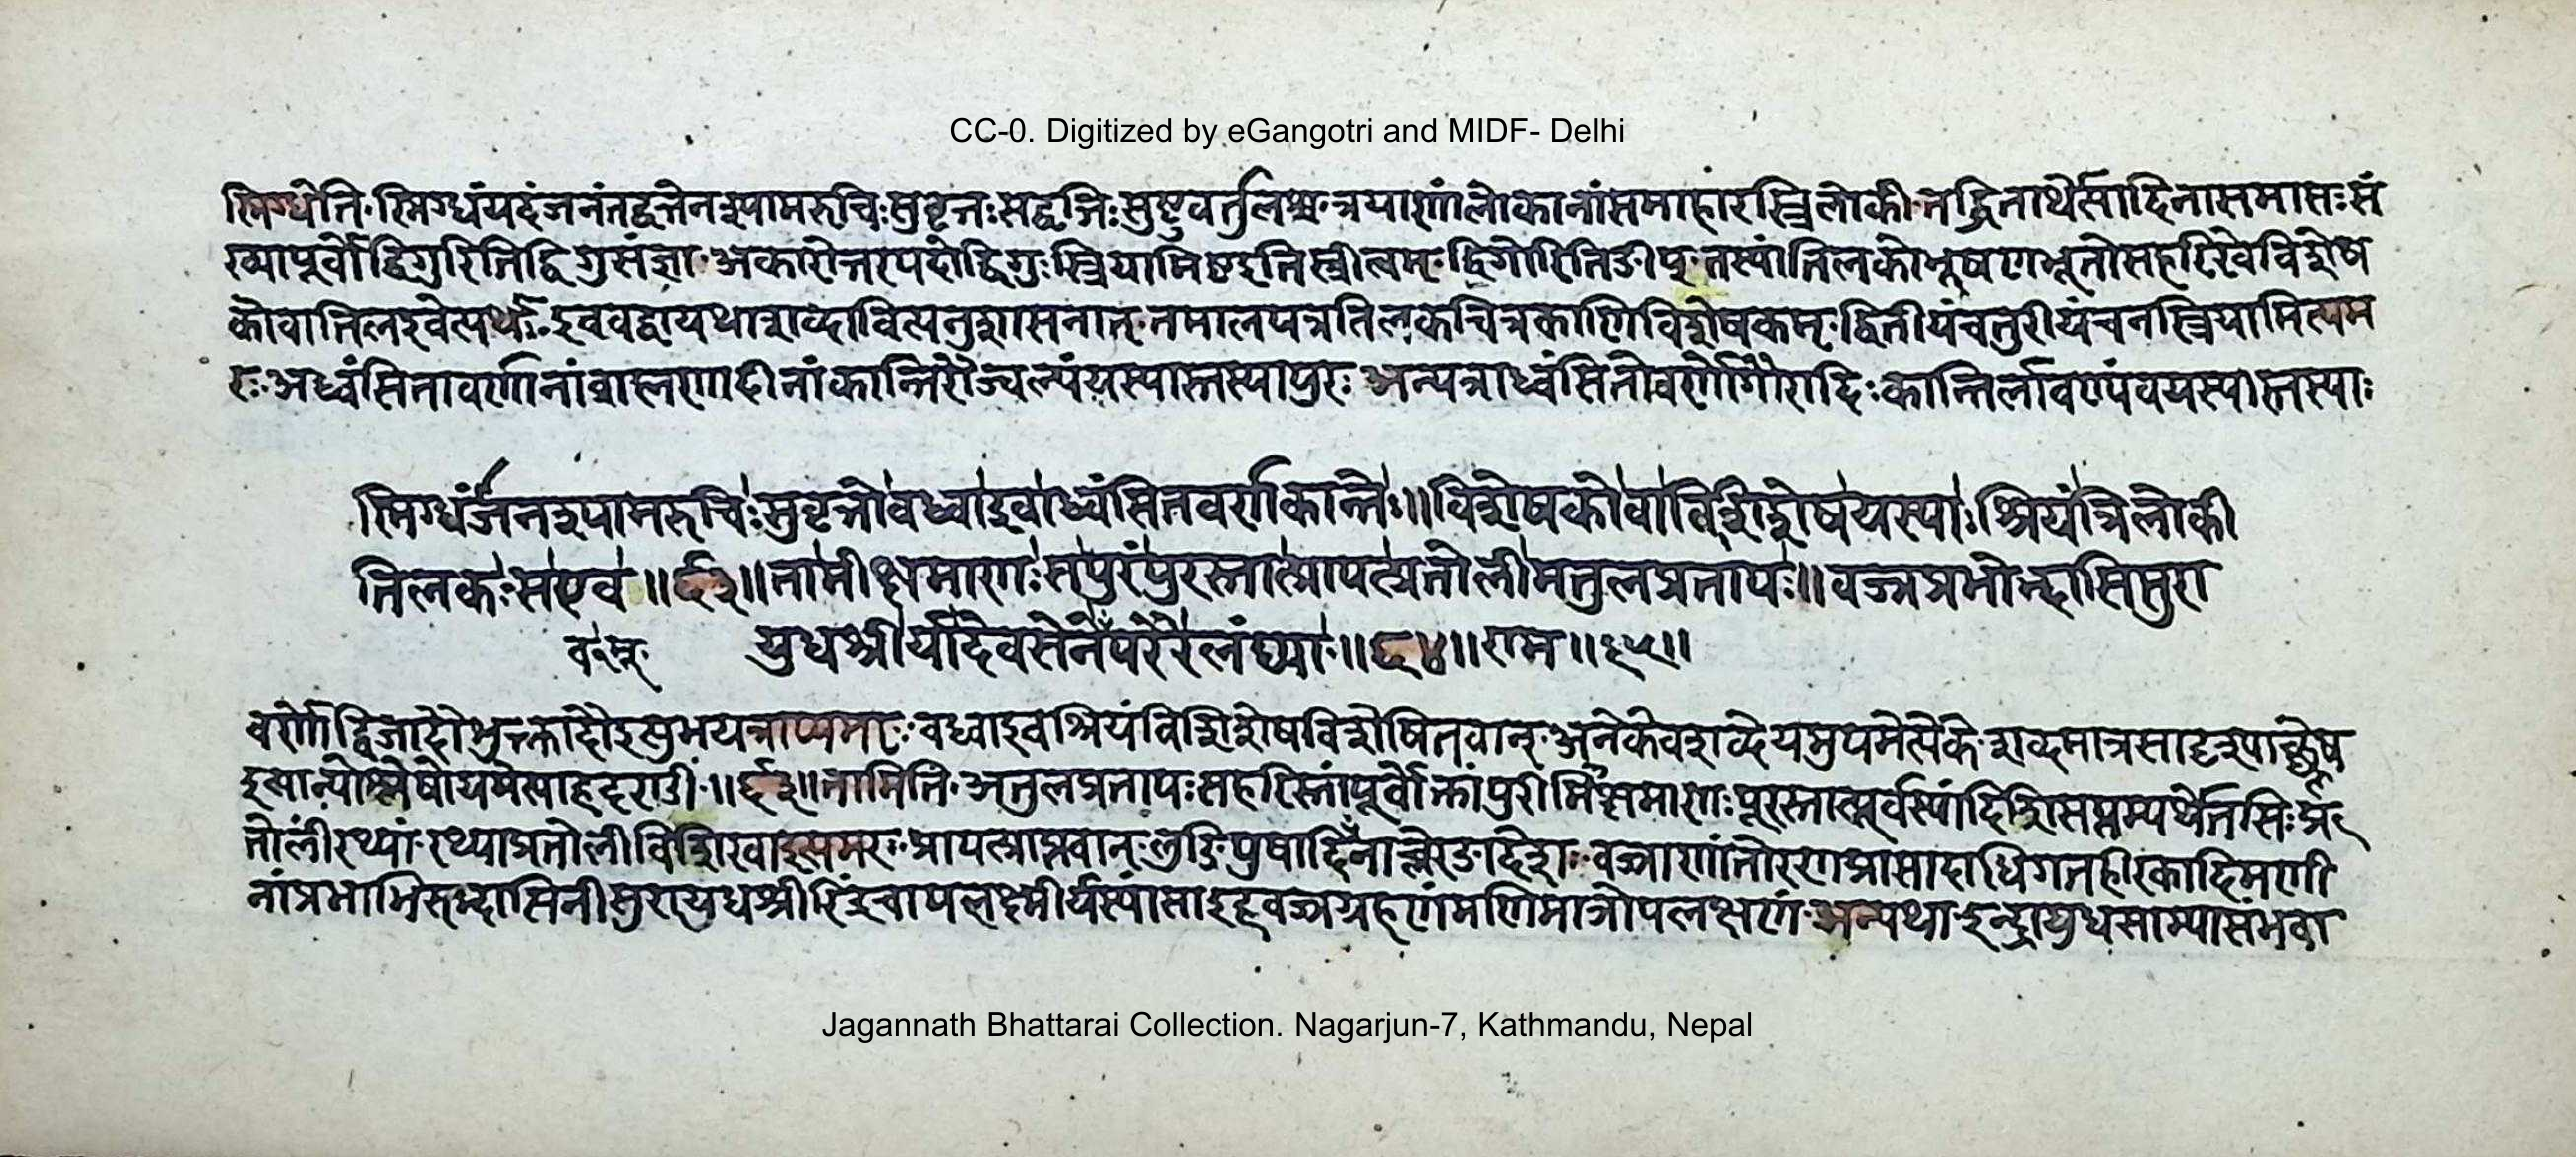 CC-0. Digitized by eGangotri and MIDF- Delhi
स्निग्धेति॰स्निग्धंयदंजनंतद्वत्तेनश्यामरुचिःसुवृत्तःसद्वृत्तिःसुष्ठुवर्तुलश्च॰त्रयाणांलोकानांसमाहारस्त्रिलोकी॰तद्धिनार्थेत्यादिनासमासःसं
ख्यापूर्वोद्विगुरितिद्विगुसंज्ञा॰अकारोत्तरपदोद्विगुःस्त्रियामिष्टइतिस्त्रीत्वम्॰द्विगोरितिङीप्॰तस्यांतिलकोभूषणभूतोसहरिरेवविशेष
कोवातिलइवेत्यर्थः॰इववद्वायथाशब्दावित्यनुशासनात्॰तमालपत्रतिलकचित्रकाणिविशेषकम्॰द्वितीयंचतुरीयंचनस्त्रियामित्यम
रः॰अध्वंसितावर्णानांब्राह्मणादीनांकान्तिरौज्वल्यंयस्यास्तस्यापुरः अन्यत्राध्वंसितोवर्णोगौरादिःकान्तिर्लावण्यंचयस्यास्तस्याः
स्निग्धांजनश्यामरुचिःसुवृत्तोवध्वाइवाध्वंसितवर्णकान्तेः॥विशेषकोवाविशिशेषयस्याःश्रियंत्रिलोकी
तिलकःसएव॥६३॥तामीक्षमाणःसपुरंपुरस्तात्प्रापत्प्रतोलीमतुलप्रतापः॥वज्रप्रभोद्भासिसुरा
युधश्रीर्यादेवसेनेवपरैरलंघ्या॥६४॥राम॥३५॥
वर्णोद्विजादौशुक्लादौइत्युभयत्राप्यमरः॰वध्वाइवश्रियंविशिशेषविशेषितवान्॰अनेकेवशब्देयमुपमेत्येके॰शब्दमात्रसादृश्याच्छ्लेष
इत्यान्योश्लेषोयमेत्याहदृराडीं॰॥६३॥तामिति॰अतुलप्रतापःसहरिस्तांपूर्वोक्तांपुरीमीक्षमाणःपुरस्तात्पूर्वस्यांदिशिसप्तम्यर्थेतसिःप्र
तोलींरथ्यां॰रथ्याप्रतोलीविशिखाइत्यमरः॰प्रापत्प्राप्तवान्॰लुङिपुषादित्वाच्च्लेरङादेशः॰वज्राणांतोरणप्रासादाधिगतहीरकादिमणी
नांप्रभाभिरुद्भासिनीसुरायुधश्रीरिंद्रचापलक्ष्मीर्यस्यांसाइहवज्रग्रहणंमणिमात्रोपलक्षणं॰अन्यथाइन्द्रायुधसाम्यासंभवा
Jagannath Bhattarai Collection. Nagarjun-7, Kathmandu, Nepal